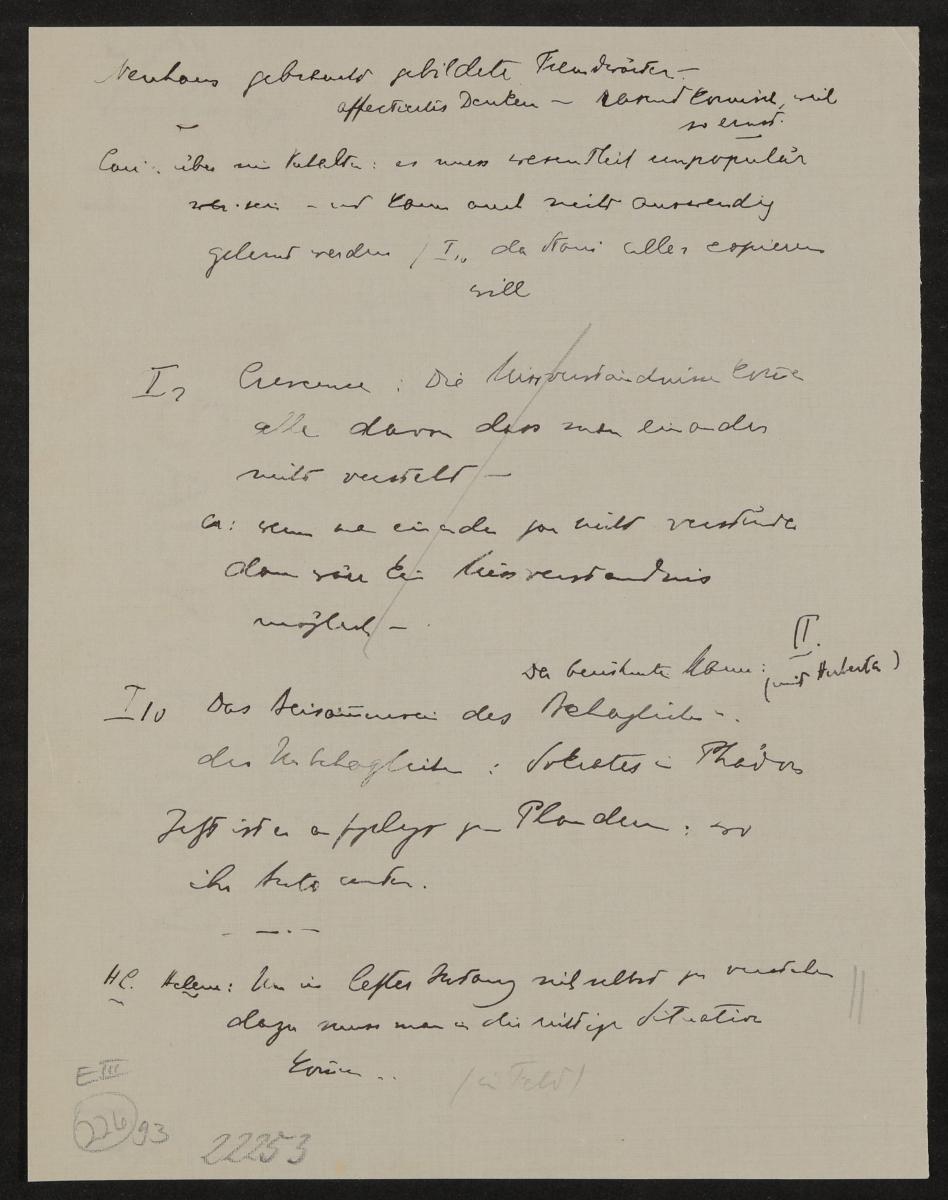 Neuhaus gebraucht gebildete Fremdwörter –
affectiertes Denken – komisch, weil
so ernst.
Cari: über sein : es muss wesentlich unpopulär
sein – und kann auch nicht auswendig
gelernt werden / I₁₀ da Stani alles copieren
will
I₂ Crescence : Die Missverständnisse kommen
alle davon dass man einander
nicht versteht –
Ca: wenn man einander gar nicht verstünde
dann wäre kein Missverständnis
möglich –
II.
Der berühmte Mann: (mit Huberta)
I10 Das Beisammensein des Behaglichen u.
des Unbehaglichen : Sokrates in Phädon
Jetzt ist er aufgelegt zum Plaudern : wo
ihr Auto wartet.
HC. Helene: Um in letzter Instanz sich selbst zu verstehen
dazu muss man in die richtige Situation
kommen ..
(im Feld)
E III
226 93
22253